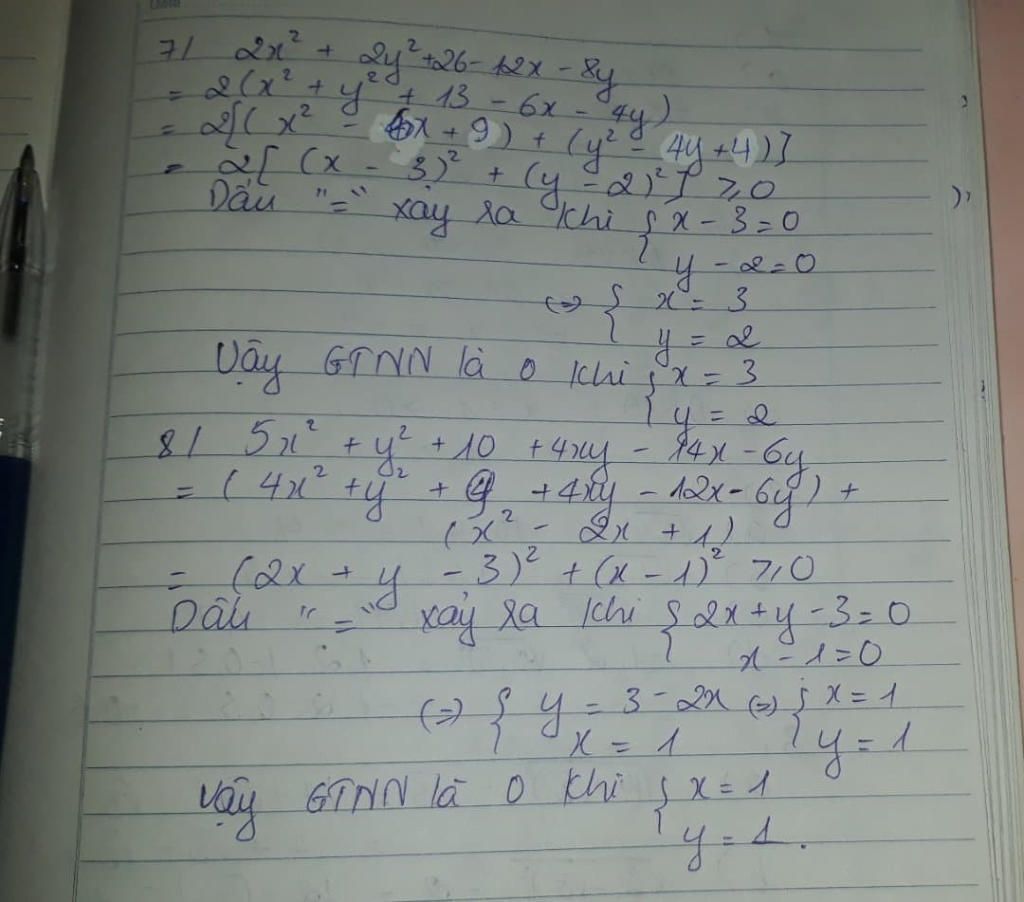 7/ 2x² + 2y² + 26 - 12x - 8y
= 2(x² + y² + 13 - 6x - 4y)
= 2[(x² - 6x + 9) + (y² - 4y + 4)]
= 2[(x - 3)² + (y - 2)²] ⩾ 0
Dấu "=" xảy ra khi { x - 3 = 0
y - 2 = 0
(=) { x = 3
y = 2
Vậy GTNN là 0 khi { x = 3
y = 2
8/ 5x² + y² + 10 + 4xy - 14x - 6y
= (4x² + y² + 9 + 4xy - 12x - 6y) +
(x² - 2x + 1)
= (2x + y - 3)² + (x - 1)² ⩾ 0
Dấu "=" xảy ra khi { 2x + y - 3 = 0
x - 1 = 0
(=) { y = 3 - 2x (=) { x = 1
x = 1 y = 1
Vậy GTNN là 0 khi { x = 1
y = 1.